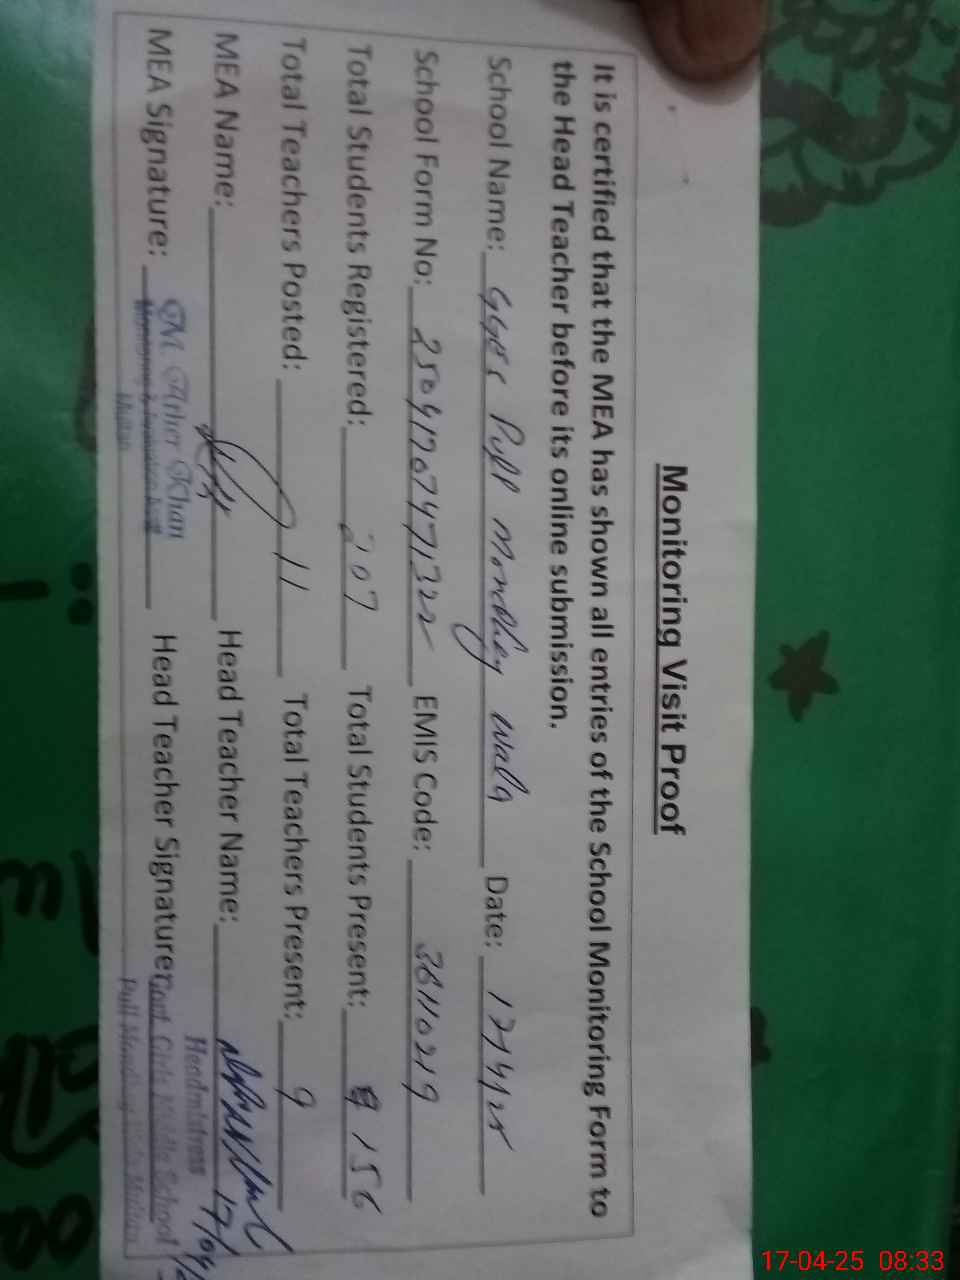 Monitoring Visit Proof
It is certified that the MEA has shown all entries of the School Monitoring Form to
the Head Teacher before its online submission.
School Name: GGES Pull Mondhey wala Date: 17/4/25
School Form No: 25041707471322 EMIS Code: 36110219
Total Students Registered: 207 Total Students Present: 156
Total Teachers Posted: 11 Total Teachers Present: 9
MEA Name: Head Teacher Name:
17/04/2
MEA Signature: M. Ather Khan Head Teacher Signature:
Monitoring & Evaluation Asstt
Multan
Headmistress
Govt. Girls Middle School
Pull Mondhey Wala Multan
17-04-25 08:33